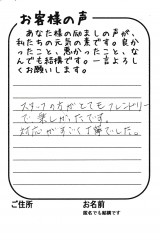 お客様の声
あなた様の励ましの声が、
私たちの元気の素です。良か
ったこと、悪かったこと、な
んでも結構です。一言よろし
くお願いします。
スタッフの方がとてもフレンドリー
で楽しかったです。
対応がすごく丁寧でした。
ご住所 お名前
匿名でも結構です